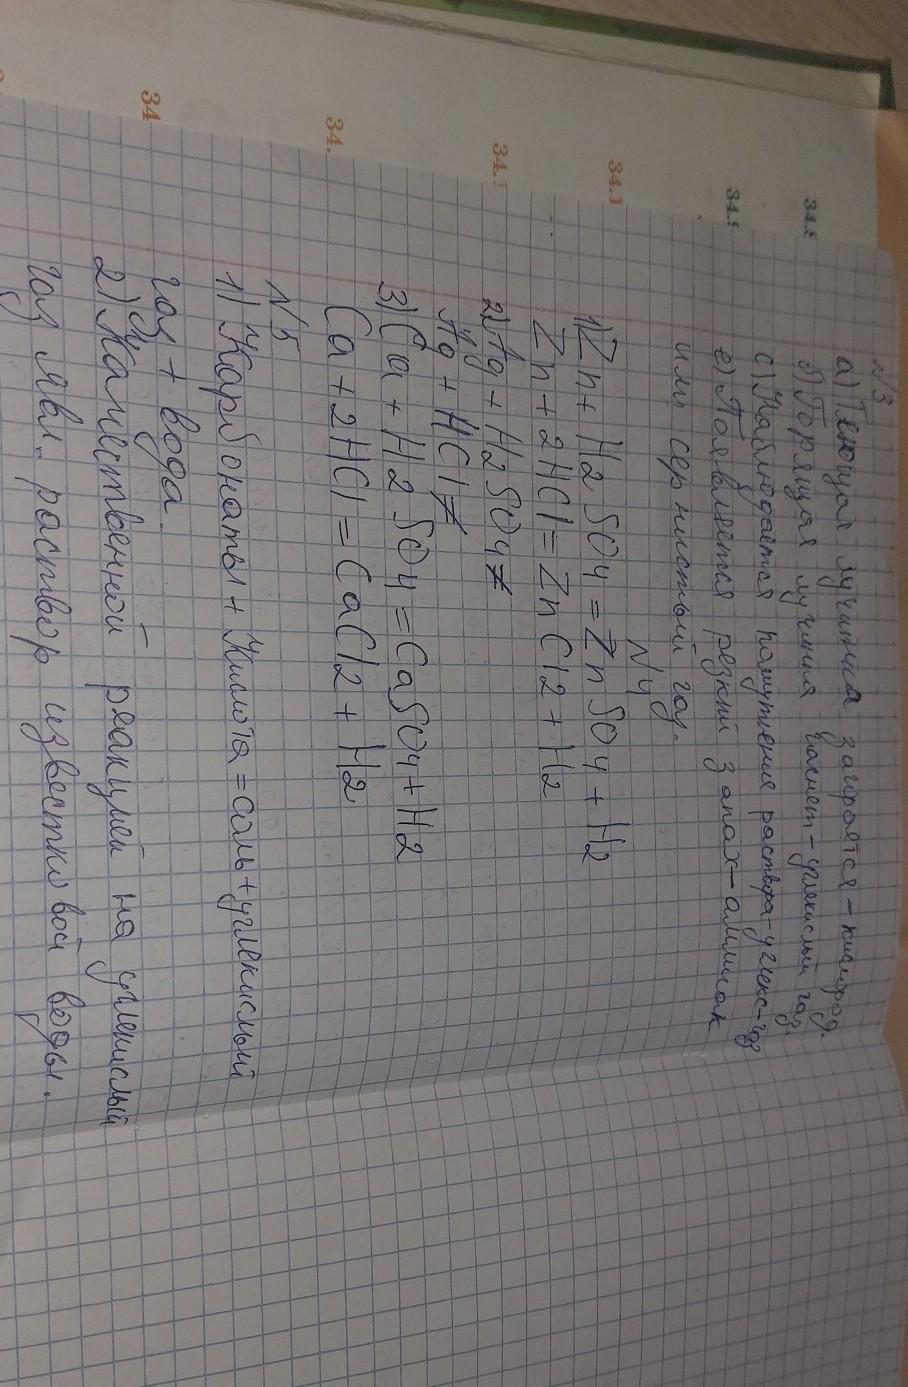 N3
а) Тлеющая лучинка загорается – кислород.
в) Горящая лучина гаснет – углекислый газ
с) Наблюдается помутнение раствора – углекс-газ
е) Появляется резкий запах – аммиак
или сернистый газ.
N4
1) Zn + H2SO4 = ZnSO4 + H2
Zn + 2HCl = ZnCl2 + H2
2) Ag + H2SO4 ≠
Ag + HCl ≠
3) Ca + H2SO4 = CaSO4 + H2
Ca + 2HCl = CaCl2 + H2
N5
1) Карбонаты + Кислота = соль + углекислый
газ + вода.
2) Качественной реакцией на углекислый
газ явл. раствор известковой воды.
34.
34.
34.1
34.1
34